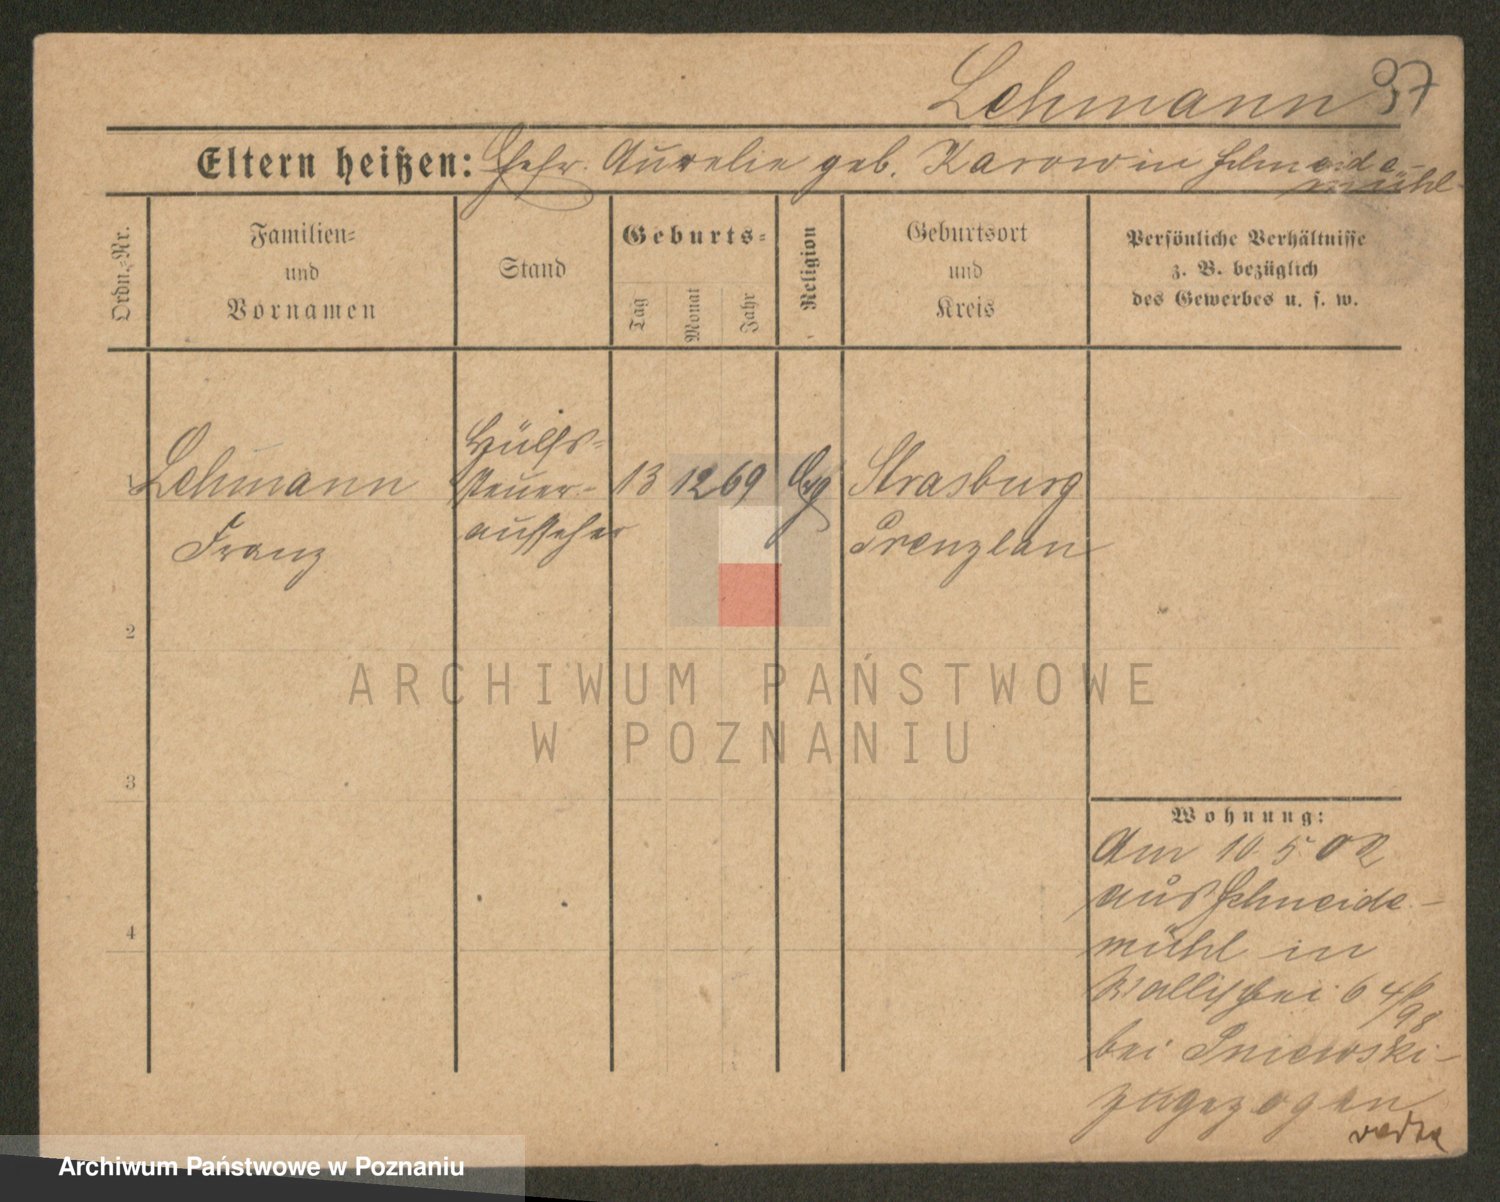 Lehmann 97
Eltern heißen: Ehefr. Aurelie geb. Karow in Schneide-
mühl
Ordn.-Nr.
Familien-
und
Vornamen
Stand
Geburts-
Tag
Monat
Jahr
Religion
Geburtsort
und
Kreis
Persönliche Verhältnisse
z. B. bezüglich
des Gewerbes u. s. w.
1 Lehmann
Franz
Hülfs-
steuer-
aufseher
13 12 69 Evg
Strasburg
Prenzlau
2
3
4
Wohnung:
Am 10 5 02
aus Schneide-
mühl in
Wallischei 6
bei Pniewski
zugezogen
ARCHIWUM PAŃSTWOWE
W POZNANIU
Archiwum Państwowe w Poznaniu